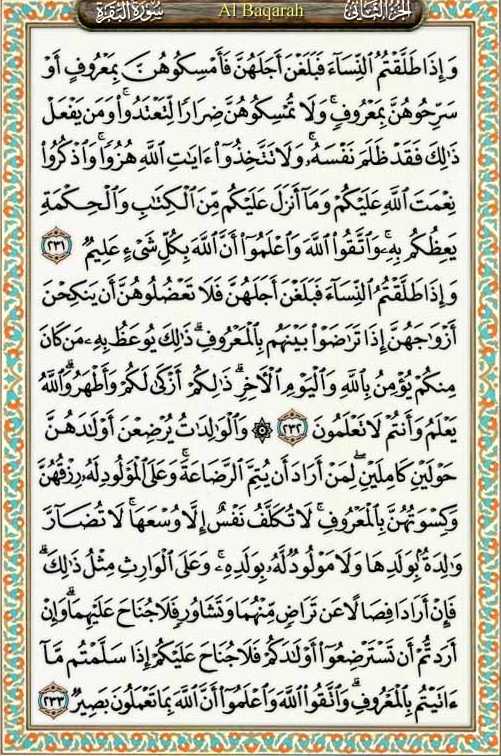 سُورَةُ البَقَرَةِ Al Baqarah الجُزْءُ الثَّانِي
وَإِذَا طَلَّقْتُمُ ٱلنِّسَآءَ فَبَلَغْنَ أَجَلَهُنَّ فَأَمْسِكُوهُنَّ بِمَعْرُوفٍ أَوْ
سَرِّحُوهُنَّ بِمَعْرُوفٍ ۚ وَلَا تُمْسِكُوهُنَّ ضِرَارًا لِّتَعْتَدُوا۟ ۚ وَمَن يَفْعَلْ
ذَٰلِكَ فَقَدْ ظَلَمَ نَفْسَهُۥ ۚ وَلَا تَتَّخِذُوٓا۟ ءَايَٰتِ ٱللَّهِ هُزُوًا ۚ وَٱذْكُرُوا۟
نِعْمَتَ ٱللَّهِ عَلَيْكُمْ وَمَآ أَنزَلَ عَلَيْكُم مِّنَ ٱلْكِتَٰبِ وَٱلْحِكْمَةِ
يَعِظُكُم بِهِۦ ۚ وَٱتَّقُوا۟ ٱللَّهَ وَٱعْلَمُوٓا۟ أَنَّ ٱللَّهَ بِكُلِّ شَىْءٍ عَلِيمٌ ٢٣١
وَإِذَا طَلَّقْتُمُ ٱلنِّسَآءَ فَبَلَغْنَ أَجَلَهُنَّ فَلَا تَعْضُلُوهُنَّ أَن يَنكِحْنَ
أَزْوَٰجَهُنَّ إِذَا تَرَٰضَوْا۟ بَيْنَهُم بِٱلْمَعْرُوفِ ۗ ذَٰلِكَ يُوعَظُ بِهِۦ مَن كَانَ
مِنكُمْ يُؤْمِنُ بِٱللَّهِ وَٱلْيَوْمِ ٱلْءَاخِرِ ۗ ذَٰلِكُمْ أَزْكَىٰ لَكُمْ وَأَطْهَرُ ۗ وَٱللَّهُ
يَعْلَمُ وَأَنتُمْ لَا تَعْلَمُونَ ٢٣٢ ۞ وَٱلْوَٰلِدَٰتُ يُرْضِعْنَ أَوْلَٰدَهُنَّ
حَوْلَيْنِ كَامِلَيْنِ ۖ لِمَنْ أَرَادَ أَن يُتِمَّ ٱلرَّضَاعَةَ ۚ وَعَلَى ٱلْمَوْلُودِ لَهُۥ رِزْقُهُنَّ
وَكِسْوَتُهُنَّ بِٱلْمَعْرُوفِ ۚ لَا تُكَلَّفُ نَفْسٌ إِلَّا وُسْعَهَا ۚ لَا تُضَآرَّ
وَٰلِدَةٌۢ بِوَلَدِهَا وَلَا مَوْلُودٌ لَّهُۥ بِوَلَدِهِۦ ۚ وَعَلَى ٱلْوَارِثِ مِثْلُ ذَٰلِكَ ۗ
فَإِنْ أَرَادَا فِصَالًا عَن تَرَاضٍ مِّنْهُمَا وَتَشَاوُرٍ فَلَا جُنَاحَ عَلَيْهِمَا ۗ وَإِنْ
أَرَدتُّمْ أَن تَسْتَرْضِعُوٓا۟ أَوْلَٰدَكُمْ فَلَا جُنَاحَ عَلَيْكُمْ إِذَا سَلَّمْتُم مَّآ
ءَاتَيْتُم بِٱلْمَعْرُوفِ ۗ وَٱتَّقُوا۟ ٱللَّهَ وَٱعْلَمُوٓا۟ أَنَّ ٱللَّهَ بِمَا تَعْمَلُونَ بَصِيرٌ ٢٣٣